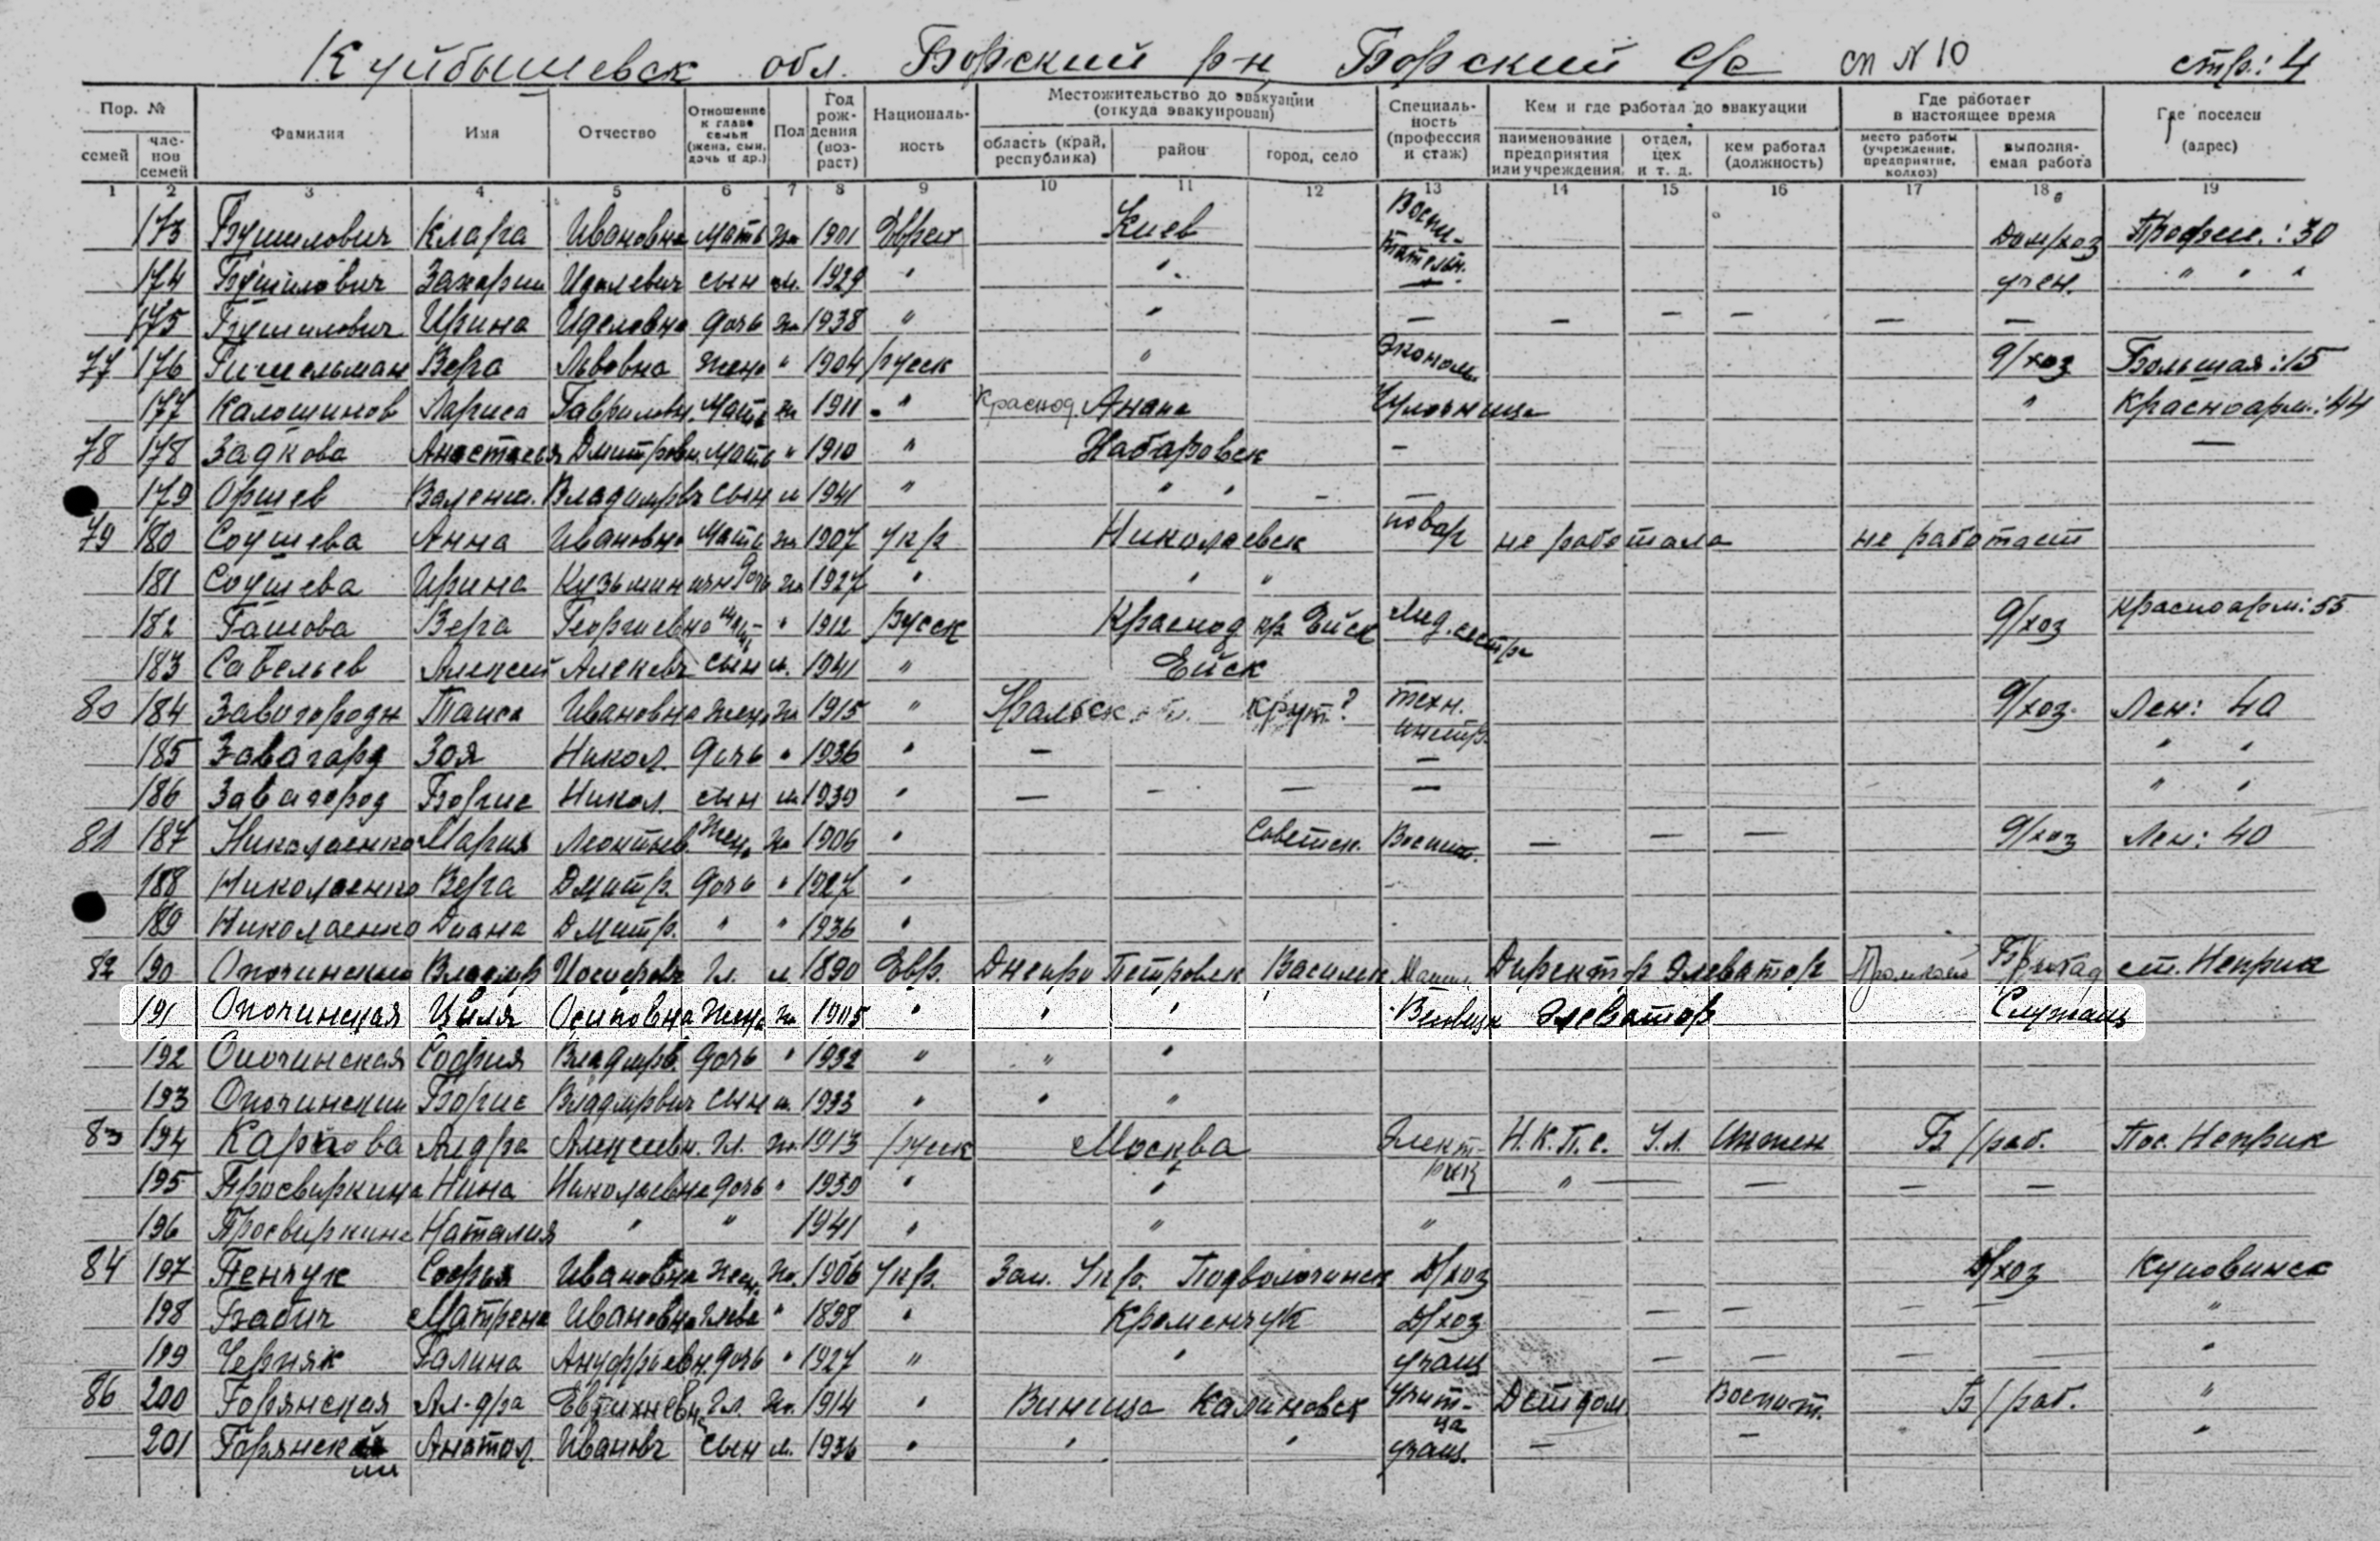 Куйбышевск обл. Борский р-н Борский с/с сп N 10 стр.: 4
Пор. № Фамилия Имя Отчество Отношение к главе семьи (жена, сын, дочь и др.) Пол Год рождения (возраст) Национальность Местожительство до эвакуации (откуда эвакуирован) Специальность (профессия и стаж) Кем и где работал до эвакуации Где работает в настоящее время Где поселен (адрес)
семей членов семей область (край, республика) район город, село наименование предприятия или учреждения отдел, цех и т. д. кем работал (должность) место работы (учреждение, предприятие, колхоз) выполняемая работа
1 2 3 4 5 6 7 8 9 10 11 12 13 14 15 16 17 18 19
173 Бушилович Клара Ивановна мать ж 1901 Еврей Киев Воспитательн. Дом/хоз Профсою. : 30
174 Бушилович Захарий Иделевич сын м. 1929 " " уч ен. " " "
175 Бушилович Ирина Иделовна дочь ж 1938 " " — — — — — —
77 176 Гишельман Вера Львовна жена " 1904 русск " Эконом. д/хоз Большая : 15
177 Калошинов Лариса Гавриловн. мать ж 1911 " Краснод. Анапа Чулочница " Красноарм.: 44
78 178 Задкова Анастасья Дмитровн. мать " 1910 " Хабаровск — —
179 Оршев Валенти. Владимрвч сын м 1941 " " " — —
79 180 Соушева Анна Ивановна мать ж 1907 укр Николаевск повар не работала не работает
181 Соушева Ирина Кузьминичн дочь ж 1927 " " "
182 Гашова Вера Георгиевна " 1912 русск Краснод кр Ейск Мед. сестра д/хоз Красноарм: 55
183 Савельев Алексей Алексевч сын м. 1941 " Ейск
80 184 Завогородн Таиса Ивановна жена ж 1915 " Уральск обл. крут? техн. инстр. д/хоз. Лен: 40
185 Завагард Зоя Никол. дочь " 1936 " — — " "
186 Завагород Борис Никол. сын м 1939 " — — — — " "
81 187 Николаенко Мария Леонтьев. жен. ж 1906 " Советск. Воспит. — — — д/хоз Лен: 40
188 Николаенко Вера Дмитр. дочь " 1927 "
189 Николаенко Диана Дмитр. " " 1936 "
82 190 Опочинский Владимр Иосифовч Гл. м. 1890 Евр. Днепро Петровск Васильк Директор элеватор Бригад ст. Неприк
191 Опочинская Циля Осиповна жена ж 1905 " " " Весовщк элеватор Служащ
192 Опочинская София Владмрв. дочь " 1932 " " "
193 Опочинский Борис Владмрвич сын м. 1933 " " "
83 194 Карпова Алдра Алексеевн. Гл. ж. 1913 русск Москва Электрик Н.К.П.С. Инжен Б/раб. Пос. Неприк
195 Просвиркина Нина Николаевна дочь " 1939 " " " — — — —
196 Просвиркина Наталия " " 1941 " " "
84 197 Пенчук Софья Ивановна жен. ж. 1906 укр. Зап. Укр. Подволочинск Д/хоз Д/хоз Куповинск
198 Бабич Матрена Ивановна глава " 1898 " Кременчук Д/хоз — — — — "
199 Черняк Галина Ануфриевн дочь " 1927 " " учащ — — — — "
86 200 Горянская Ал-дра Евтихневна Гл. ж. 1914 " Виница Калиновск Учит-ца Детдом Воспит. Б/раб. "
201 Горянский Анатол. Ивановч сын м. 1936 " " " учащ. — — "